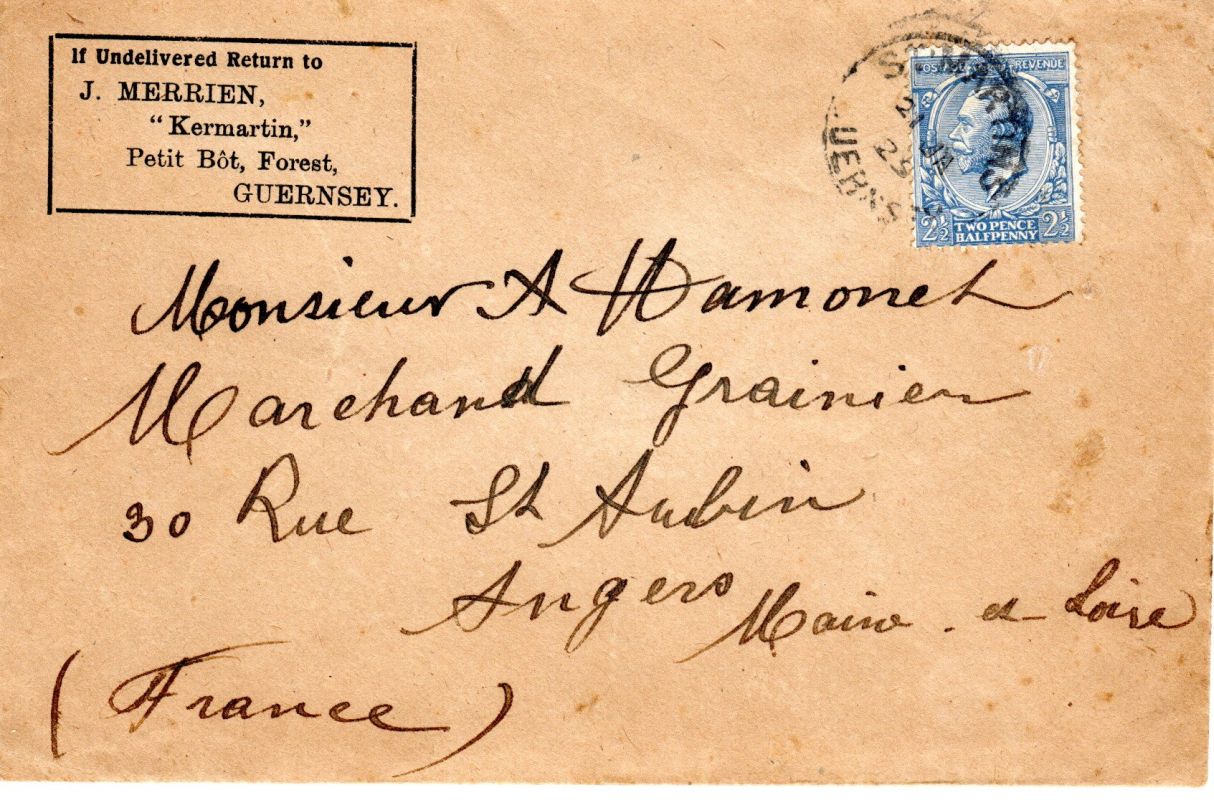 If Undelivered Return to
J. MERRIEN,
"Kermartin,"
Petit Bôt, Forest,
GUERNSEY.
ST MARTINS
21 JA
25
GUERNSEY
REVENUE
2½ TWO PENCE HALFPENNY 2½
Monsieur A Hamonet
Marchand Grainier
30 Rue St Aubin
Angers Maine-et-Loire
(France)